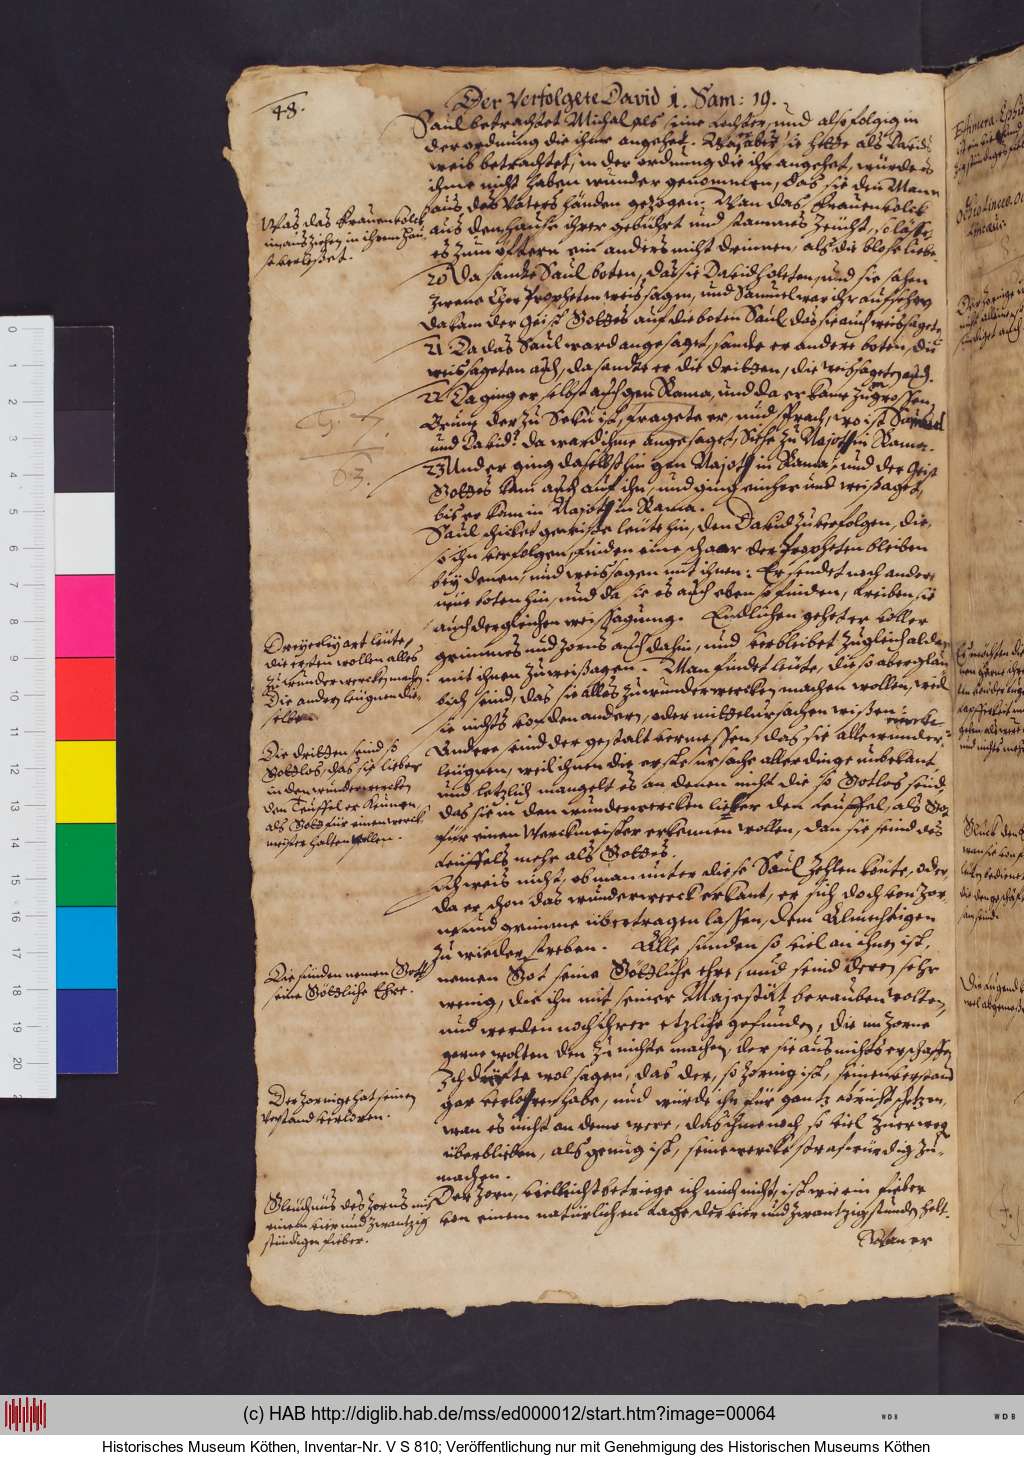 48.
Der Verfolgete David 1. Sam: 19.
Saul betrachtet Michal als seine Tochter, und also folgig in
der ordnung die ihme angehet. Was aber sie hette als Davids
weib betrachtet, in der ordnung die ihr angehet, würde es
ihme nicht haben wunder genommen, das sie den Mann
aus des Vaters händen gezogen. Wan das frauenvolck
aus dem hause ihrer gebuhrt und stammes zeucht, so lässe
es zum öftern ein anders nicht drinnen, als die blose liebe.
Was das frauenvolck
im ausziehen in ihrem hau
se verlesset.
20 Da sandte Saul boten, das sie David holeten, und sie sahen
zwene Chor Propheten weissagen, und Samuel war ihr aufseher,
da kam der Geist Gottes auf die boten Saul das sie auch weissageten
21 Da das Saul ward angesaget, sandte er andere boten, die
weissageten auch, da sandte er die dritten, die weissageten auch.
22 Da ging er selbst auch gen Rama, und da er kame zum grossen
Brunn der zu Seku ist, fragete er, und sprach, wo ist Samuel
und David? da ward ihme angesaget, Sihe zu Najoth in Rama.
23 Und er ging daselbst hin gen Najoth in Rama, und der Geist
Gottes kam auch auf ihn, und ging einher und weissaget,
bis er kam in Najoth in Rama.
Saul schicket gewisse leute hin, den David zu verfolgen, die
so ihn verfolgen, finden eine schaar der Propheten bleiben
bey denen, und weissagen mit ihnen: Er sendet noch andere
neue boten hin, und da sie es auch eben so finden, treiben sie
auch dergleichen weissagung. Endlichen gehet er voller
grimmes und zorns auch dahin, und verbleibet zugleich alda
mit ihnen zu weissagen. Man findet leute, die so abergläu
bisch seind, das sie alles zu wunderwercken machen wollen, weil
sie nichts von den andern, oder mittelursachen wissen:
Andere seind der gestalt vermessen, das sie alle wunder-
wercke
leugnen, weil ihnen die erste ursache aller dinge unbekant,
und letzlich mangelt es an denen nicht die so Gotlos seind,
das sie in den wunderwercken lieber den teuffel, als Got
für einen Werckmeister erkennen wollen, dan sie seind des
teuffels mehr als Gottes.
Dreyerley art leute,
die ersten wollen alles
zu wunderwercken machen.
Die andern leugnen die-
selben.
Die dritten seind so
Gottlos, das sie lieber
in den wunderwercken
den Teuffel erkennen,
als Gott für einen werck
meister halten wollen.
Ich weis nicht, ob man unter diese Saul zehlen könte, oder,
da er schon das wunderwerck erkant, er sich doch von zor
ne und grimme übertragen lassen, dem Almechtigen
zu wiederstreben. Alle sunden so viel an ihnen ist,
nemen Got seine Göttliche ehre, und seind deren sehr
wenig, die ihn mit seiner Majestät berauben wolten,
und werden noch ihrer etzliche gefunden, die im zorne
gerne wolten den zu nichte machen, der sie aus nichts erschaffen
Ich dürfte wol sagen, das der, so zornig ist, seinen verstand
gar verlohren habe, und würde ihn für gantz töricht schetzen,
wan es nicht an deme were, das ihme noch so viel
überblieben, als genug ist, seine wercke strafwürdig zu-
machen.
Die sünden nemen Gott
seine Göttliche Ehre.
Der zornige hat seinen
verstand verloren.
Der zorn, vielleicht betriege ich mich nicht, ist wie ein fieber
von einem natürlichen tage, der vier und zwantzig stunden helt.
Gleichnus des zorns mit
einem vier und zwantzig
stündigen fieber.
Wan er
(c) HAB http://diglib.hab.de/mss/ed000012/start.htm?image=00064
Historisches Museum Köthen, Inventar-Nr. V S 810; Veröffentlichung nur mit Genehmigung des Historischen Museums Köthen